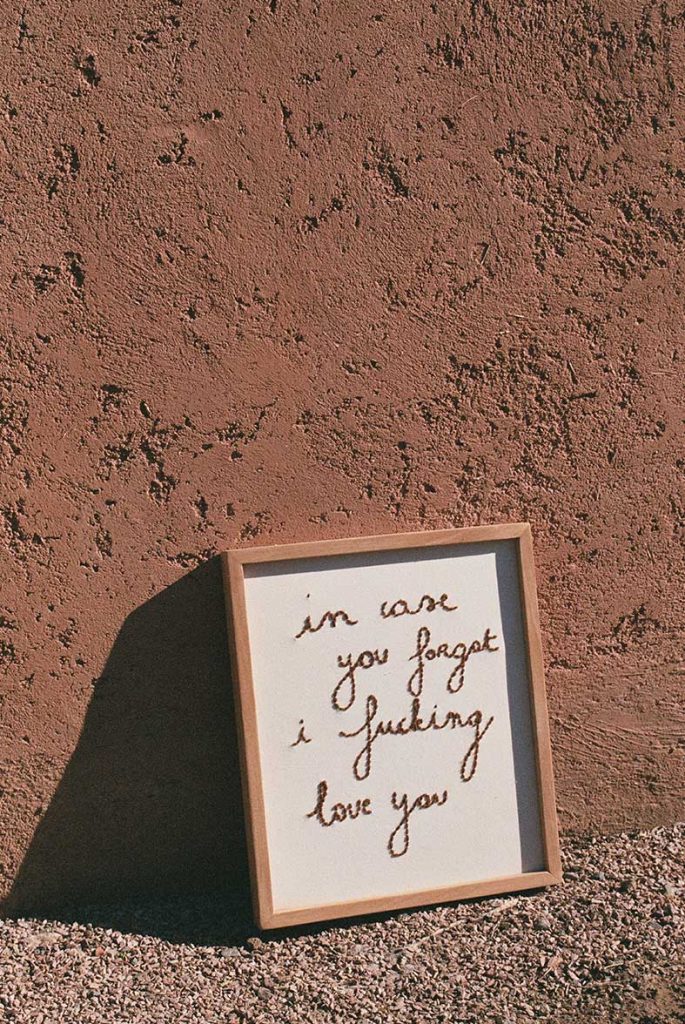 in case
you forget
i fucking
love you